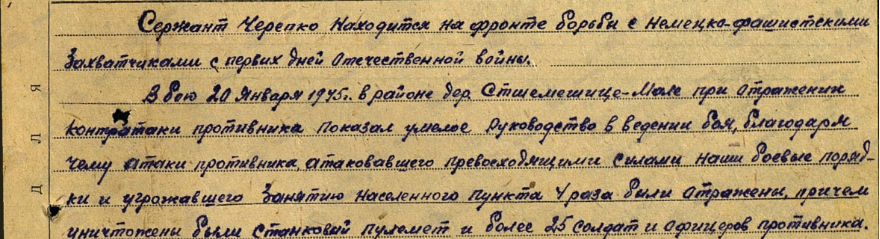 Сержант Черепко находится на фронте борьбы с немецко-фашистскими
захватчиками с первых дней Отечественной войны.
В бою 20 января 1945г. в районе дер. Стшемешице-Мале при отражении
контратаки противника показал умелое руководство в ведении боя, благодаря
чему атаки противника, атаковавшего превосходящими силами наши боевые поряд-
ки и угрожавшего занятию населенного пункта 4 раза были отражены, причем
уничтожены были станковый пулемет и более 25 солдат и офицеров противника.
Д Л Я